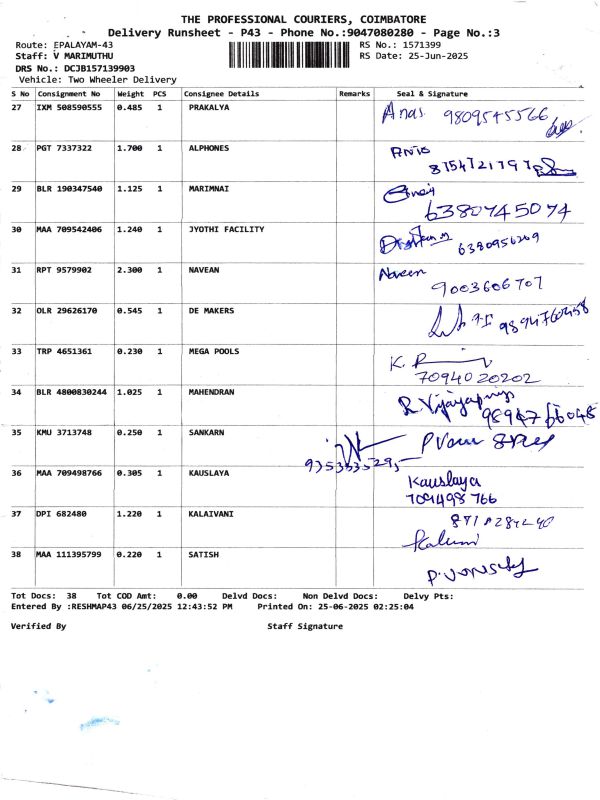 THE PROFESSIONAL COURIERS, COIMBATORE
Delivery Runsheet - P43 - Phone No.:9047080280 - Page No.:3
Route: EPALAYAM-43
RS No.: 1571399
Staff: V MARIMUTHU
RS Date: 25-Jun-2025
DRS No.: DCJB157139903
Vehicle: Two Wheeler Delivery
S No Consignment No Weight PCS Consignee Details Remarks Seal & Signature
27 IXM 508590555 0.485 1 PRAKALYA Anas 9809545566
28 PGT 7337322 1.700 1 ALPHONES
8754721797
29 BLR 190347540 1.125 1 MARIMNAI
6380745074
30 MAA 709542406 1.240 1 JYOTHI FACILITY
6380956209
31 RPT 9579902 2.300 1 NAVEAN Naveen
9003606707
32 OLR 29626170 0.545 1 DE MAKERS
9894760458
33 TRP 4651361 0.230 1 MEGA POOLS K. R
7094020202
34 BLR 4800830244 1.025 1 MAHENDRAN R. Vijayapriya
35 KMU 3713748 0.250 1 SANKARN
36 MAA 709498766 0.305 1 KAUSLAYA Kauslaya
709498766
37 DPI 682480 1.220 1 KALAIVANI
38 MAA 111395799 0.220 1 SATISH
Tot Docs: 38 Tot COD Amt: 0.00 Delvd Docs: Non Delvd Docs: Delvy Pts:
Entered By :RESHMAP43 06/25/2025 12:43:52 PM Printed On: 25-06-2025 02:25:04
Verified By Staff Signature